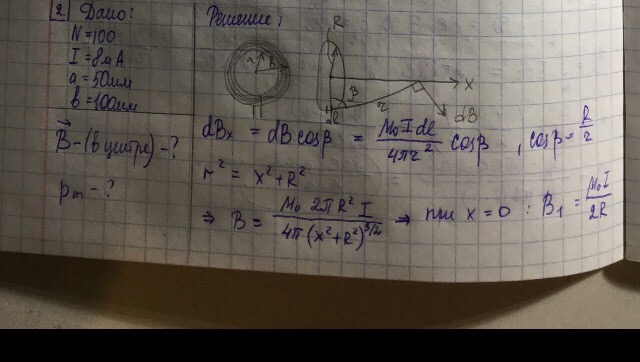 2 Дано:
N=100
I=8мА
a=50мм
b=100мм
B⃗-(в центре)-?
pₘ-?
Решение:
a b
R
x
β
r
dl
dB
dBₓ = dB cosβ = μ₀ I dl / 4πr² cosβ , cosβ = R/r
r² = x² + R²
⇒ B = μ₀ 2π R² I / 4π (x²+R²)^3/2 ⇒ при x = 0 : B₁ = μ₀ I / 2R